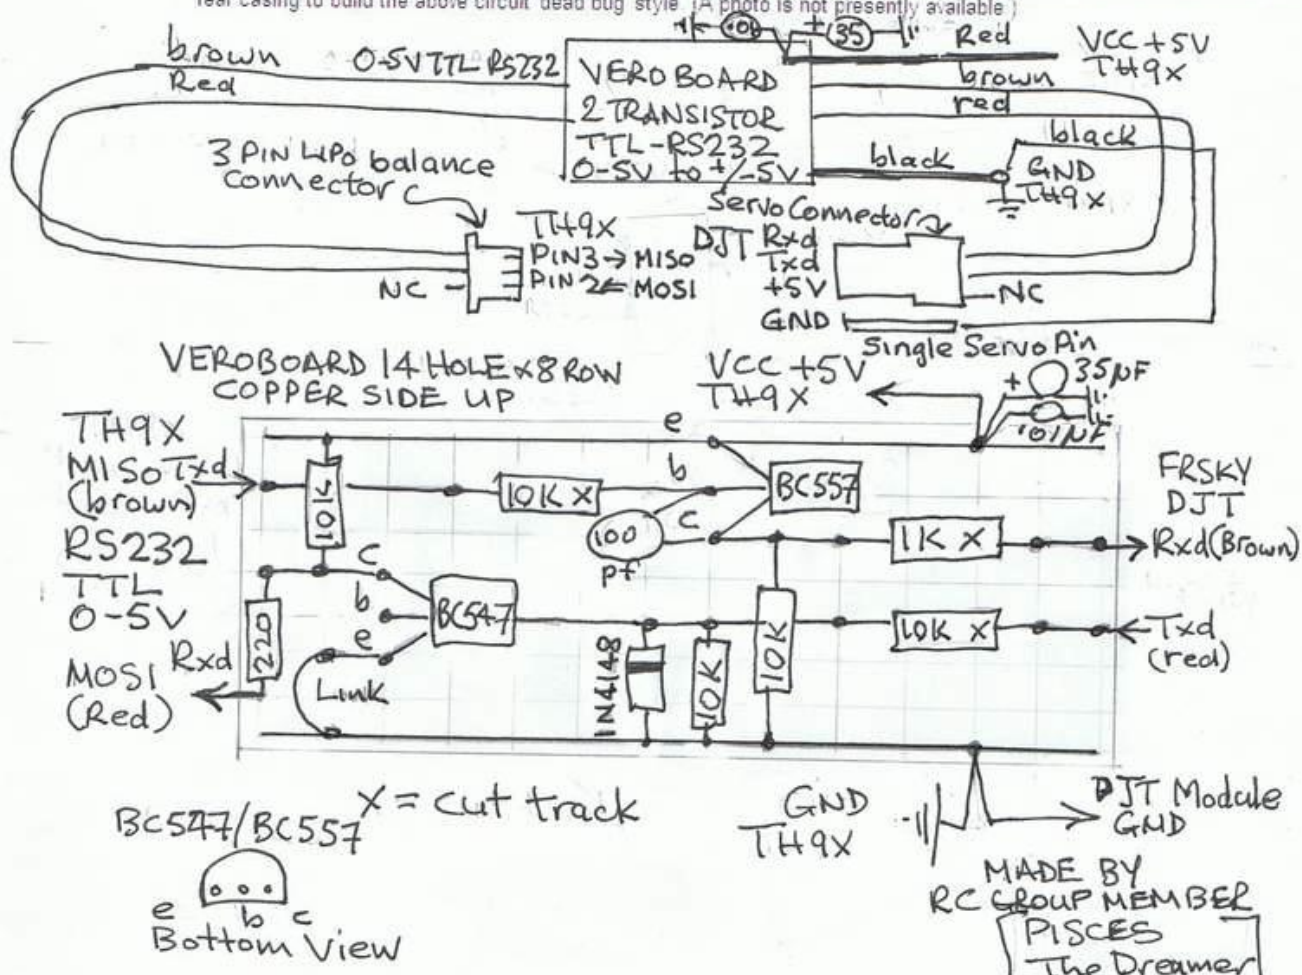 rear casing to build the above circuit 'dead bug' style. (A photo is not presently available )
brown
Red
0-5V TTL RS232
VEROBOARD
2 TRANSISTOR
TTL-RS232
0-5V to +/-5V
.01
+ 35
Red
VCC +5V
TH9X
brown
red
black
black
GND
TH9X
3 PIN LiPo balance
Connector
TH9X
PIN3→ MISO
PIN2← MOSI
NC
Servo Connector
DJT Rxd
Txd
+5V
GND
NC
Single Servo Pin
VEROBOARD 14 HOLE x 8 ROW
COPPER SIDE UP
VCC +5V
TH9X
+ 35µF
.01µF
TH9X
MISO Txd
(brown)
RS232
TTL
0-5V
MOSI Rxd
(Red)
10K
220
10K X
e
b
c
BC557
100
pf
c
b
e
BC547
Link
1N4148
10K
10K
1K X
10K X
FRSKY
DJT
Rxd(Brown)
Txd
(red)
X = cut track
BC547/BC557
e b c
Bottom View
GND
TH9X
DJT Module
GND
MADE BY
RC GROUP MEMBER
PISCES
The Dreamer